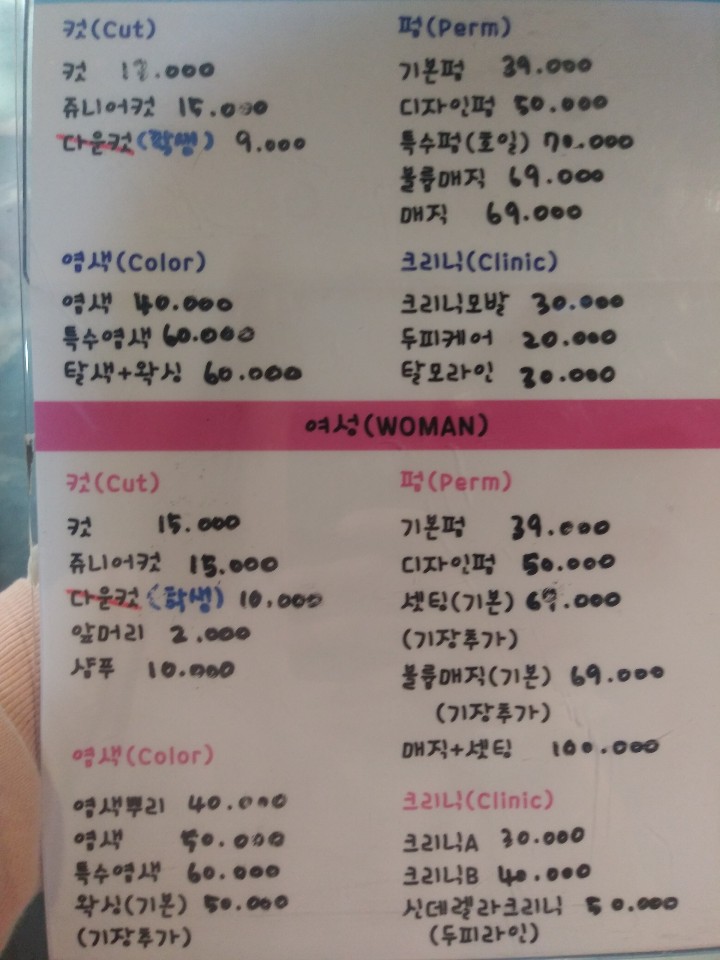 컷(Cut)
컷
쥬니어컷 15.000
다운컷(학생) 9.000
펌(Perm)
기본펌 39.000
디자인펌 50.000
특수펌(호일) 70.000
볼륨매직 69.000
매직 69.000
염색(Color)
염색 40.000
특수염색 60.000
탈색+왁싱 60.000
크리닉(Clinic)
크리닉모발 30.000
두피케어 20.000
탈모라인 30.000
여성(WOMAN)
컷(Cut)
컷 15.000
쥬니어컷 15.000
다운컷(학생) 10.000
앞머리 2.000
샴푸 10.000
펌(Perm)
기본펌 39.000
디자인펌 50.000
셋팅(기본) 69.000
(기장추가)
볼륨매직(기본) 69.000
(기장추가)
매직+셋팅 100.000
염색(Color)
염색뿌리 40.000
염색 50.000
특수염색 60.000
왁싱(기본) 50.000
(기장추가)
크리닉(Clinic)
크리닉A 30.000
크리닉B 40.000
신데렐라크리닉 50.000
(두피라인)